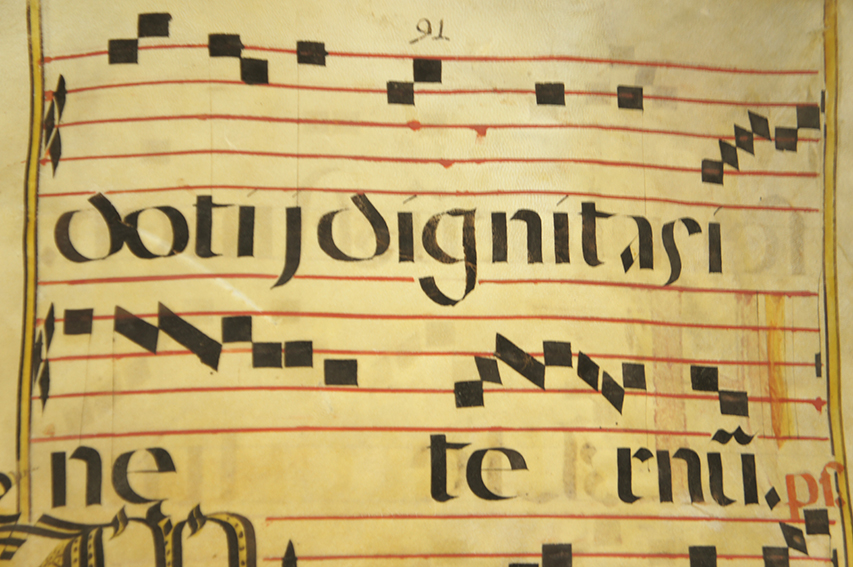 91
dotij dignitas i
ne te rnū. ps.